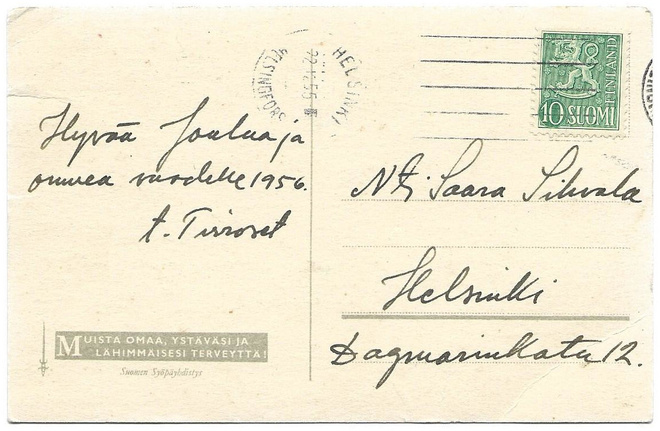 HELSINKI
22.12.55
HELSINGFORS
FINLAND
10 SUOMI
Hyvää Joulua ja
onnea vuodelle 1956.
t. Tirroset
Nti Saara Sihvola
Helsinki
Dagmarinkatu 12.
MUISTA OMAA, YSTÄVÄSI JA
LÄHIMMÄISESI TERVEYTTÄ!
Suomen Syöpäyhdistys